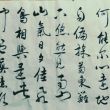 何能爾心遠
自偏採菊東籬
下悠然見南
山氣日夕佳
鳥相與還
中有真意